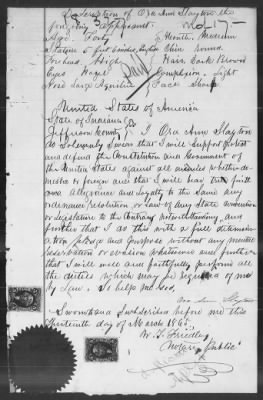 Description of Ora Ann Slayton the
foregoing applicant. No 17
Age Forty Mouth Medium
Stature 5 feet 6 inches, Chin round
Forehead High Hair Dark Brown
Eyes Hazel Complexion Light
Nose Large Aquiline Face Sharp
United States of America
State of Indiana
Jefferson County I Ora Ann Slayton
do Solemnly Swear that I will Support protect
and defend the Constitution and Government of
the United States against all enemies whether do-
mestic or foreign and that I will bear true faith
and allegiance and loyalty to the Same any
ordinance resolution or law of any State convention
or legislature to the Contrary notwithstanding, and
further that I do this with a full determina-
tion pledge and purpose without any mental
reservation or evasion whatsoever and further
that I will well and faithfully perform all
the duties which may be required of me
by law. So help me God.
Ora Ann Slayton
Sworn to and Subscribed before me this
thirteenth day of March 186
Notary Public